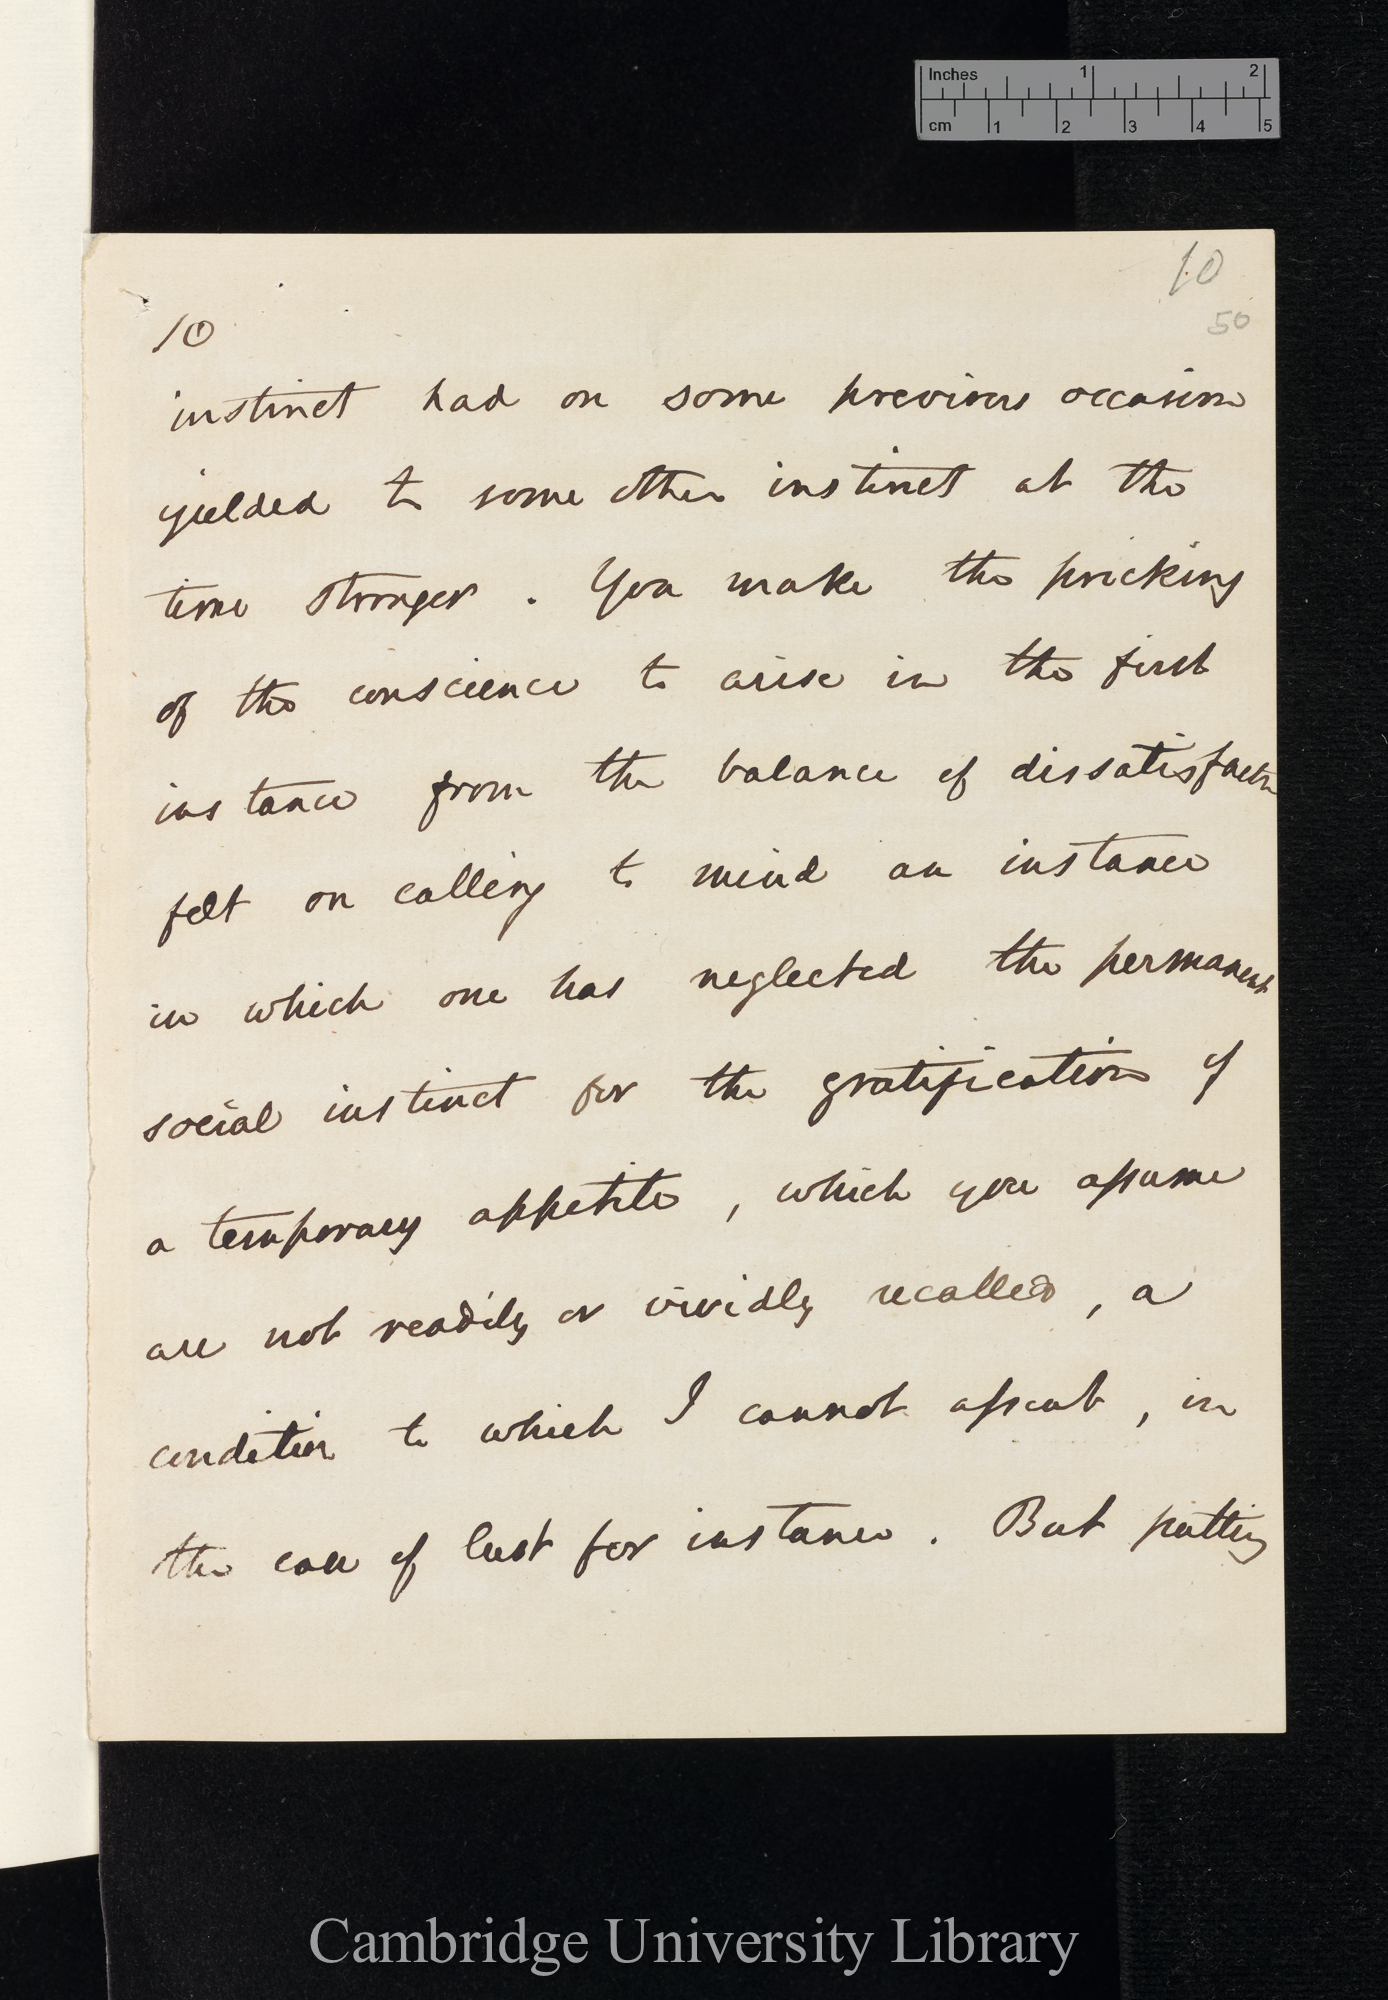 Inches 1 2
cm 1 2 3 4 5
10
50
10
instinct had on some previous occasion
yielded to some other instinct at the
time stronger. You make the pricking
of the conscience to arise in the first
instance from the balance of dissatisfactn
felt on calling to mind an instance
in which one has neglected the permanent
social instinct for the gratification of
a temporary appetite, which you assume
are not readily or vividly recalled, a
condition to which I cannot assent, in
the case of lust for instance. But putting
Cambridge University Library